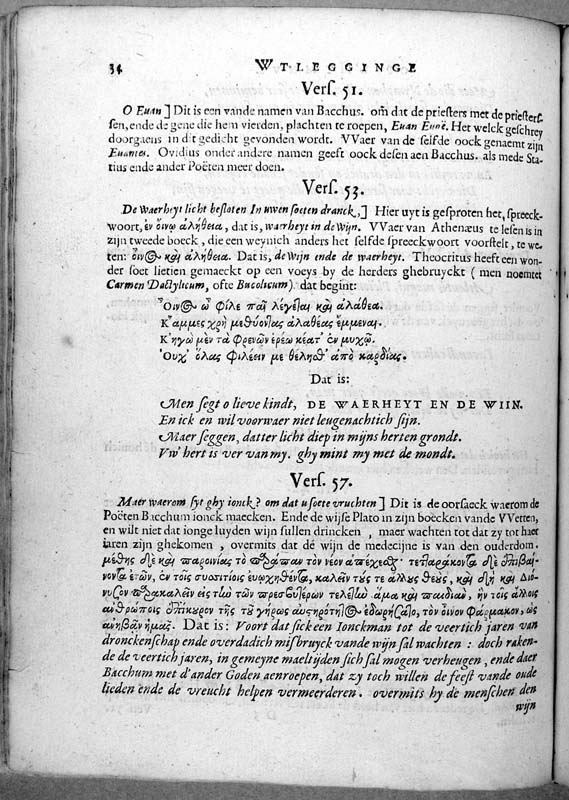 34 WTLEGGINGE
Vers. 51.
O Euan] Dit is een vande namen van Bacchus. om dat de priesters met de priesters-
sen, ende de gene die hem vierden, plachten te roepen, Euan Euoë. Het welck geschrey
doorgaens in dit gedicht gevonden wordt. VVaer van de selfde oock genaemt zijn
Euantes. Ovidius onder andere namen geeft oock desen aen Bacchus. als mede Sta-
tius ende ander Poëten meer doen.
Vers. 53.
De Waerheyt licht besloten In uwen soeten dranck,] Hier uyt is gesproten het, spreeck-
woort, ἐν οἴνῳ ἀλήθεια, dat is, waerheyt in de Wijn. VVaer van Athenæus te lesen is in
zijn tweede boeck, die een weynich anders het selfde spreeckwoort voorstelt, te we-
ten: οἶνος καὶ ἀλήθεια. Dat is, de Wijn ende de waerheyt. Theocritus heeft een won-
der soet lietien gemaeckt op een voeys by de herders ghebruyckt (men noemtet
Carmen Dactylicum, ofte Bucolicum) dat begint:
Οἶνος ὦ φίλε παῖ λέγεται καὶ ἀλάθεα.
Κ'άμμες χρὴ μεθύοντας ἀλαθέας ἔμμεναι.
Κ'ηγὼ μὲν τὰ φρενῶν ἐρέω κέατ' ἐν μυχῷ.
Οὐχ' ὅλας φιλέειν με θέλησθ' ἀπὸ καρδίας.
Dat is:
Men segt o lieve kindt, DE WAERHEYT EN DE WIIN.
En ick en wil voorwaer niet leugenachtich sijn.
Maer seggen, datter licht diep in mijns herten grondt.
Vw' hert is ver van my. ghy mint my met de mondt.
Vers. 57.
Maer waerom syt ghy ionck? om dat u soete vruchten] Dit is de oorsaeck waerom de
Poëten Bacchum ionck maecken. Ende de wijse Plato in zijn boecken vande VVetten,
en wilt niet dat ionge luyden wijn sullen drincken, maer wachten tot dat zy tot haer
iaren zijn ghekomen, overmits dat dé wijn de medecijne is van den ouderdom.
μέθης δὲ καὶ παροινίας τὸ παράπαν τὸν νέον ἀπέχεσθ' τετταράκοντα δὲ ἐπιβαί-
νοντα ἐτῶν, ἐν τοῖς συσσιτίοις εὐωχηθέντα, καλεῖν τούς τε ἄλλους θεοὺς, καὶ δὴ καὶ Διό-
νυσον παρακαλεῖν εἰς τὴν τῶν πρεσβυτέρων τελετὴν ἅμα καὶ παιδιὰν, ἣν τοῖς ἄλλοις
ἀνθρώποις ἐπίκουρον τῆς τοῦ γήρως αὐστηρότητος ἐδωρήσατο, τὸν οἶνον φάρμακον, ὡς
ἀνηβᾶν ἡμας. Dat is: Voort dat sick een Ionckman tot de veertich jaren van
dronckenschap ende overdadich misbruyck vande wijn sal wachten: doch raken-
de de veertich jaren, in gemeyne maeltijden sich sal mogen verheugen, ende daer
Bacchum met d'ander Goden aenroepen, dat zy toch willen de feest vande oude
lieden ende de vreucht helpen vermeerderen. overmits hy de menschen den
wijn